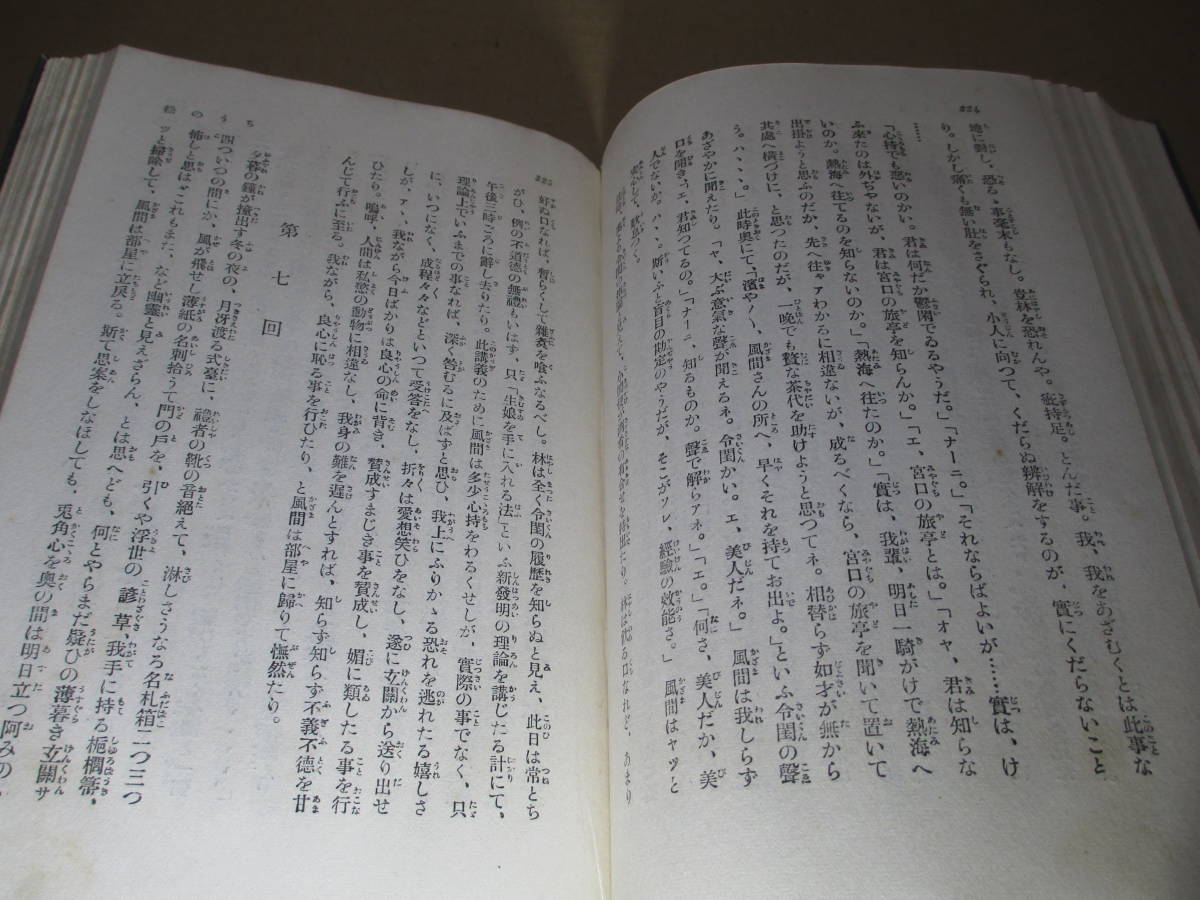 224
地に對し、恐るゝ事毫末もなし。豈林を恐れんや。
とんだ事。我、我をあざむくとは此事な
り。しかし痛くも無い肚をさぐられ、小人に向つて、くだらぬ辨解をするのが、實にくだらないこと
……
「心持でも惡いのかい。君は何だか鬱閑でゐるやうだ。」「ナーニ。」「それならばよいが……實は、け
ふ來たのは外ぢやないが、君は宮口の旅亭を知らんか。」「エ、宮口の旅亭とは。」「オヤ、君は知らな
いのか。熱海へ往てるのを知らないのか。」「熱海へ往たのか。」「實は、我輩、明日一騎がけで熱海へ
出掛ようと思ふのだか、先へ往ァわかるに相違ないが、成るべくなら、宮口の旅亭を聞いて置いて
其處へ横づけに、と思つたのだが、一晩でも贅な茶代を助けようと思つてネ。相替らず如才が無から
う。ハヽヽヽ。」此時奥にて、「濱や〳〵、風間さんの所へ、早くそれを持てお出よ。」といふ令閨の聲
あざやかに聞えたり。「ヤ、大ぶ意氣な聲が聞えるネ。令閨かい。エ、美人だネ。」風間は我しらず
口を開き、「エ、君知つてるの。」「ナーニ、知るものか。聲で解らァネ。」「エ。」「何さ、美人だか、美
人でないか。ハヽヽ。斯いふと盲目の勘定のやうだが、そこがソレ、經驗の效能さ。」風間はヤッと
225
がひ、例の不道德の無禮もいはず、只「生娘を手に入れる法」といふ新發明の理論を講じたる計にて、
好ぬ口なれば、暫らくして雜煮を喰ふなるべし。林は全く令閨の履歷を知らぬと見え、此日は常とち
午後三時ごろに辭し去りたり。此講義のために風間は多少心持をわるくせしが、實際の事でなく、只
理論上でいふまでの事なれば、深く咎むるに及ばずと思ひ、我上にふりかゝる恐れを逃れたる嬉しさ
に、いつになく、成程々々などといつて受答をなし、折々は愛想笑ひをなし、遂に立關から送り出せ
しが、アヽ、我ながら今日ばかりは良心の命に背き、賛成すまじき事を賛成し、媚に類したる事を行
ひたり。嗚呼、人間は私慾の動物に相違なし、我身の難を遅んとすれば、知らず知らず不義不德を甘
んじて行ふに至る。我ながら、良心に恥る事を行ひたり、と風間は部屋に歸りて憮然たり。
第七回
夕暮の鐘が撞出す冬の夜の、月冴渡る式臺に、
者の靴の音絶えて、淋しさうなる名札箱二つ三つ
四ついつの間にか、風が飛せし薄紙の名刺拾うて門の戶を、引くや浮世の諺草、我手に持る梔櫚箒、
怖しと思は〝これもまた、など幽靈と見えざらん、とは思へども、何とやらまだ疑ひの薄暮き立關サ
ッと掃除して、風間は部屋に立戾る。斯て思案をしなほしても、兎角心を奥の間は明日立つ阿みの